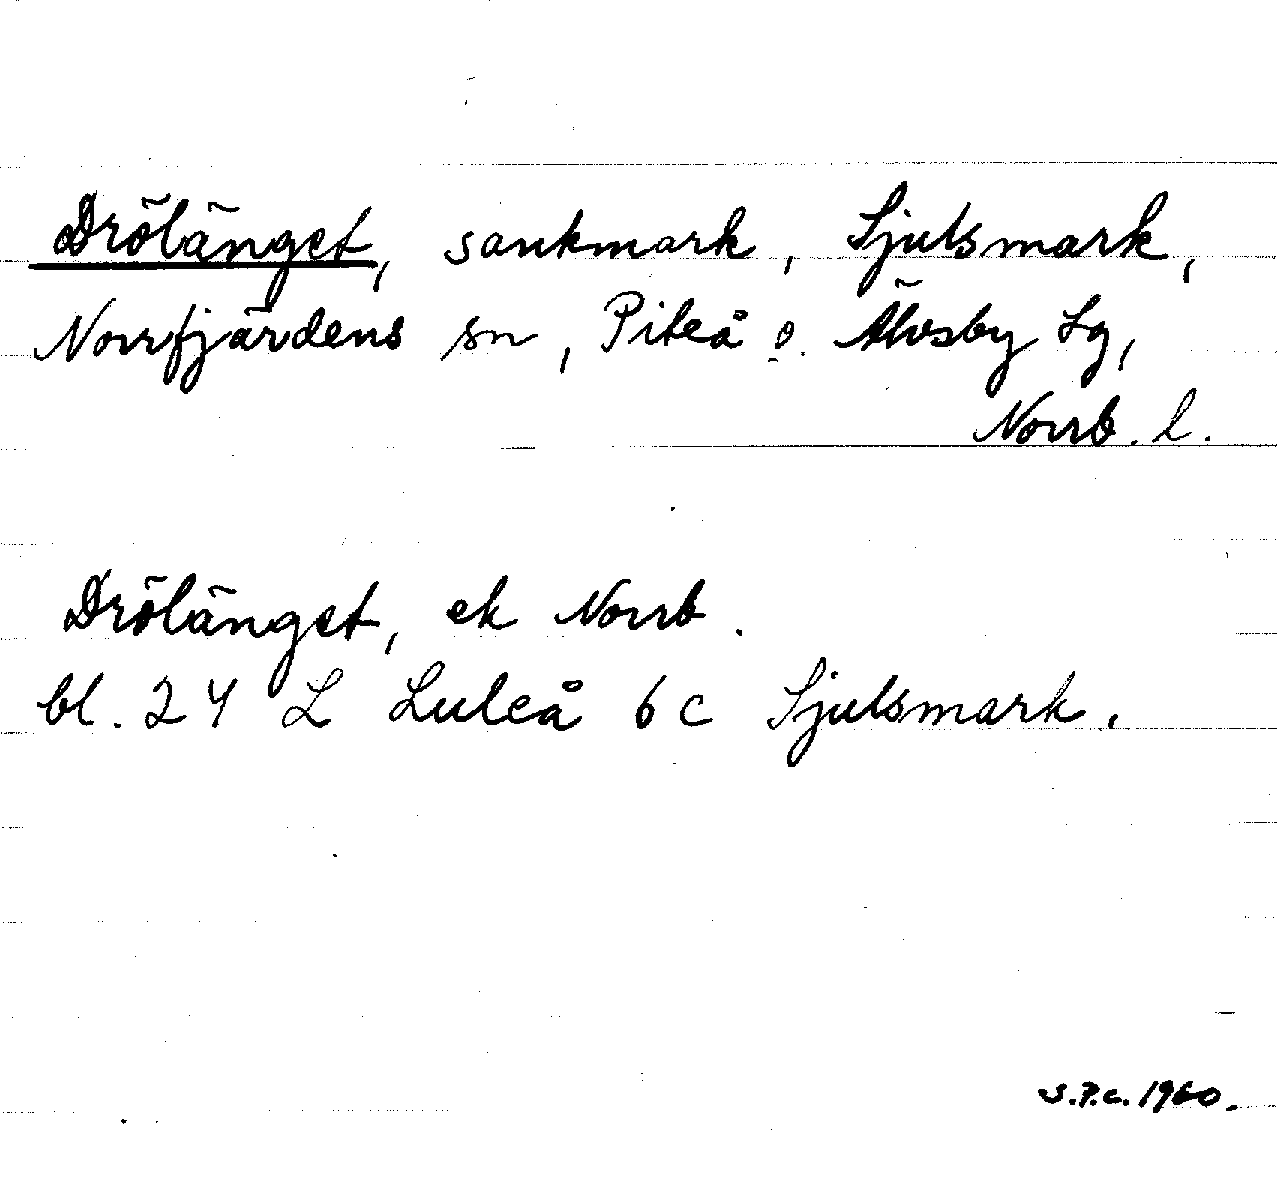 Drölänget, sankmark, Sjulsmark,
Norrfjärdens sn, Piteå o. Älvsby tg,
Norrb. l.
Drölänget, ek Norrb.
bl. 24 L Luleå 6 c Sjulsmark.
S.P.C. 1960.